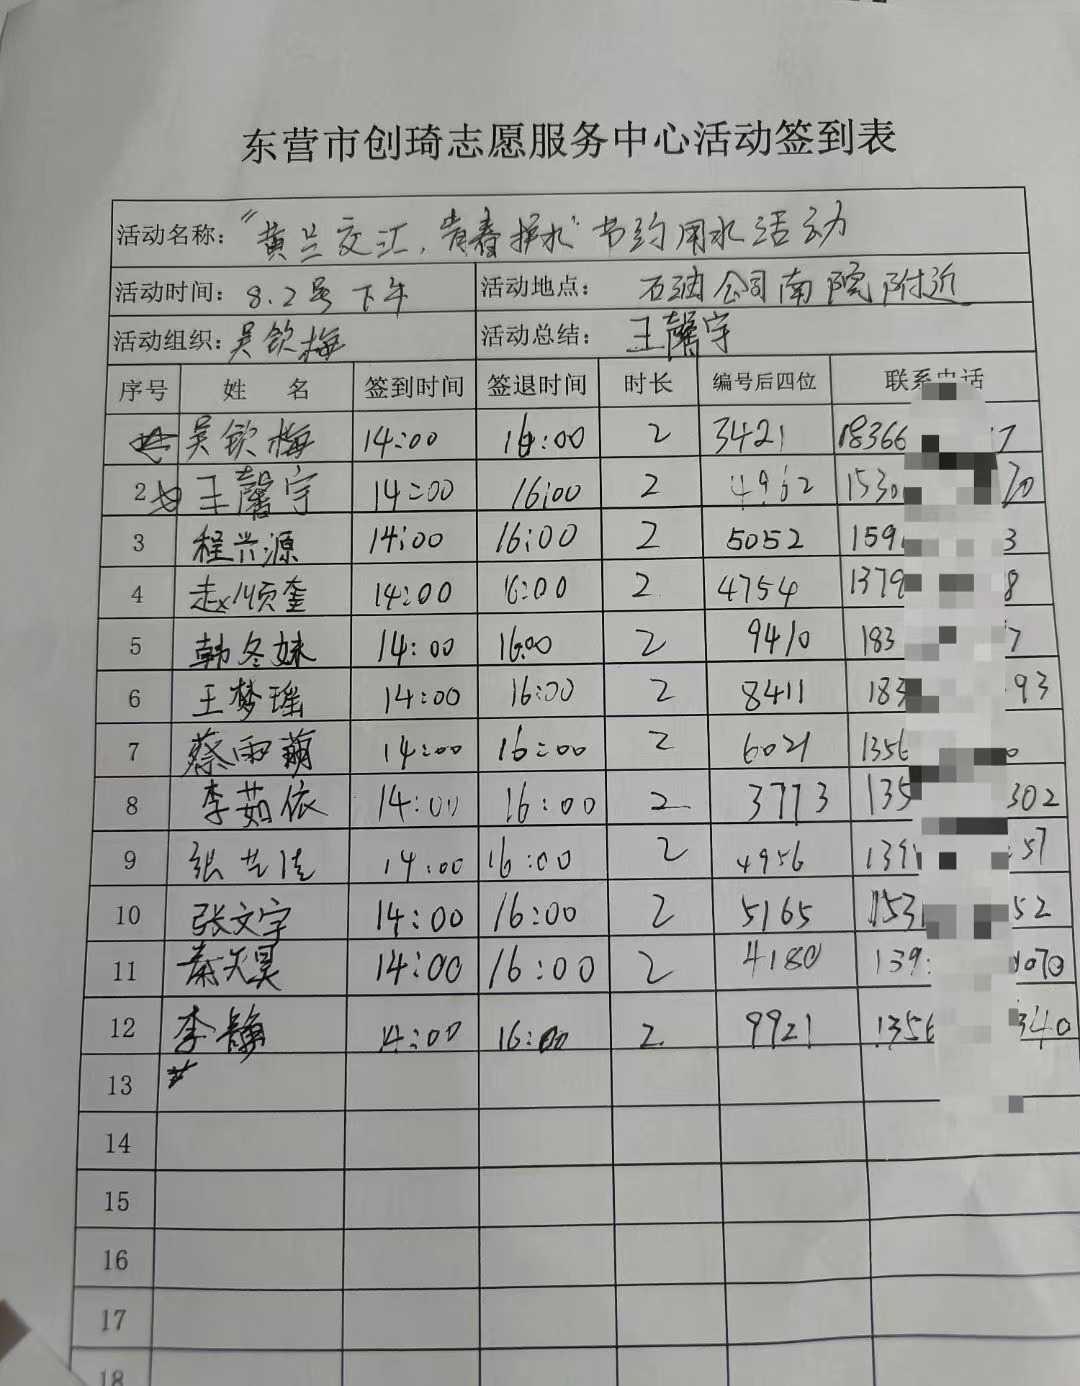 东营市创琦志愿服务中心活动签到表
活动名称："黄兰交汇，青春护水"节约用水活动
活动时间：8.2号下午 活动地点：石油公司南院附近
活动组织：吴钦梅 活动总结：王馨宇
序号 姓名 签到时间 签退时间 时长 编号后四位 联系电话
吴钦梅 14:00 16:00 2 3421 18366 7
2 王馨宇 14:00 16:00 2 4962 1530 70
3 程兴源 14:00 16:00 2 5052 159 3
4 赵顺奎 14:00 16:00 2 4754 1379 8
5 韩冬妹 14:00 16:00 2 9410 183 7
6 王梦瑶 14:00 16:00 2 8411 183 93
7 蔡雨萌 14:00 16:00 2 6021 1356 0
8 李茹依 14:00 16:00 2 3773 135 302
9 张艺佳 14:00 16:00 2 4956 139 57
10 张文宇 14:00 16:00 2 5165 153 52
11 秦天昊 14:00 16:00 2 4180 139 070
12 李静 14:00 16:00 2 9921 1356 340
13
14
15
16
17
18